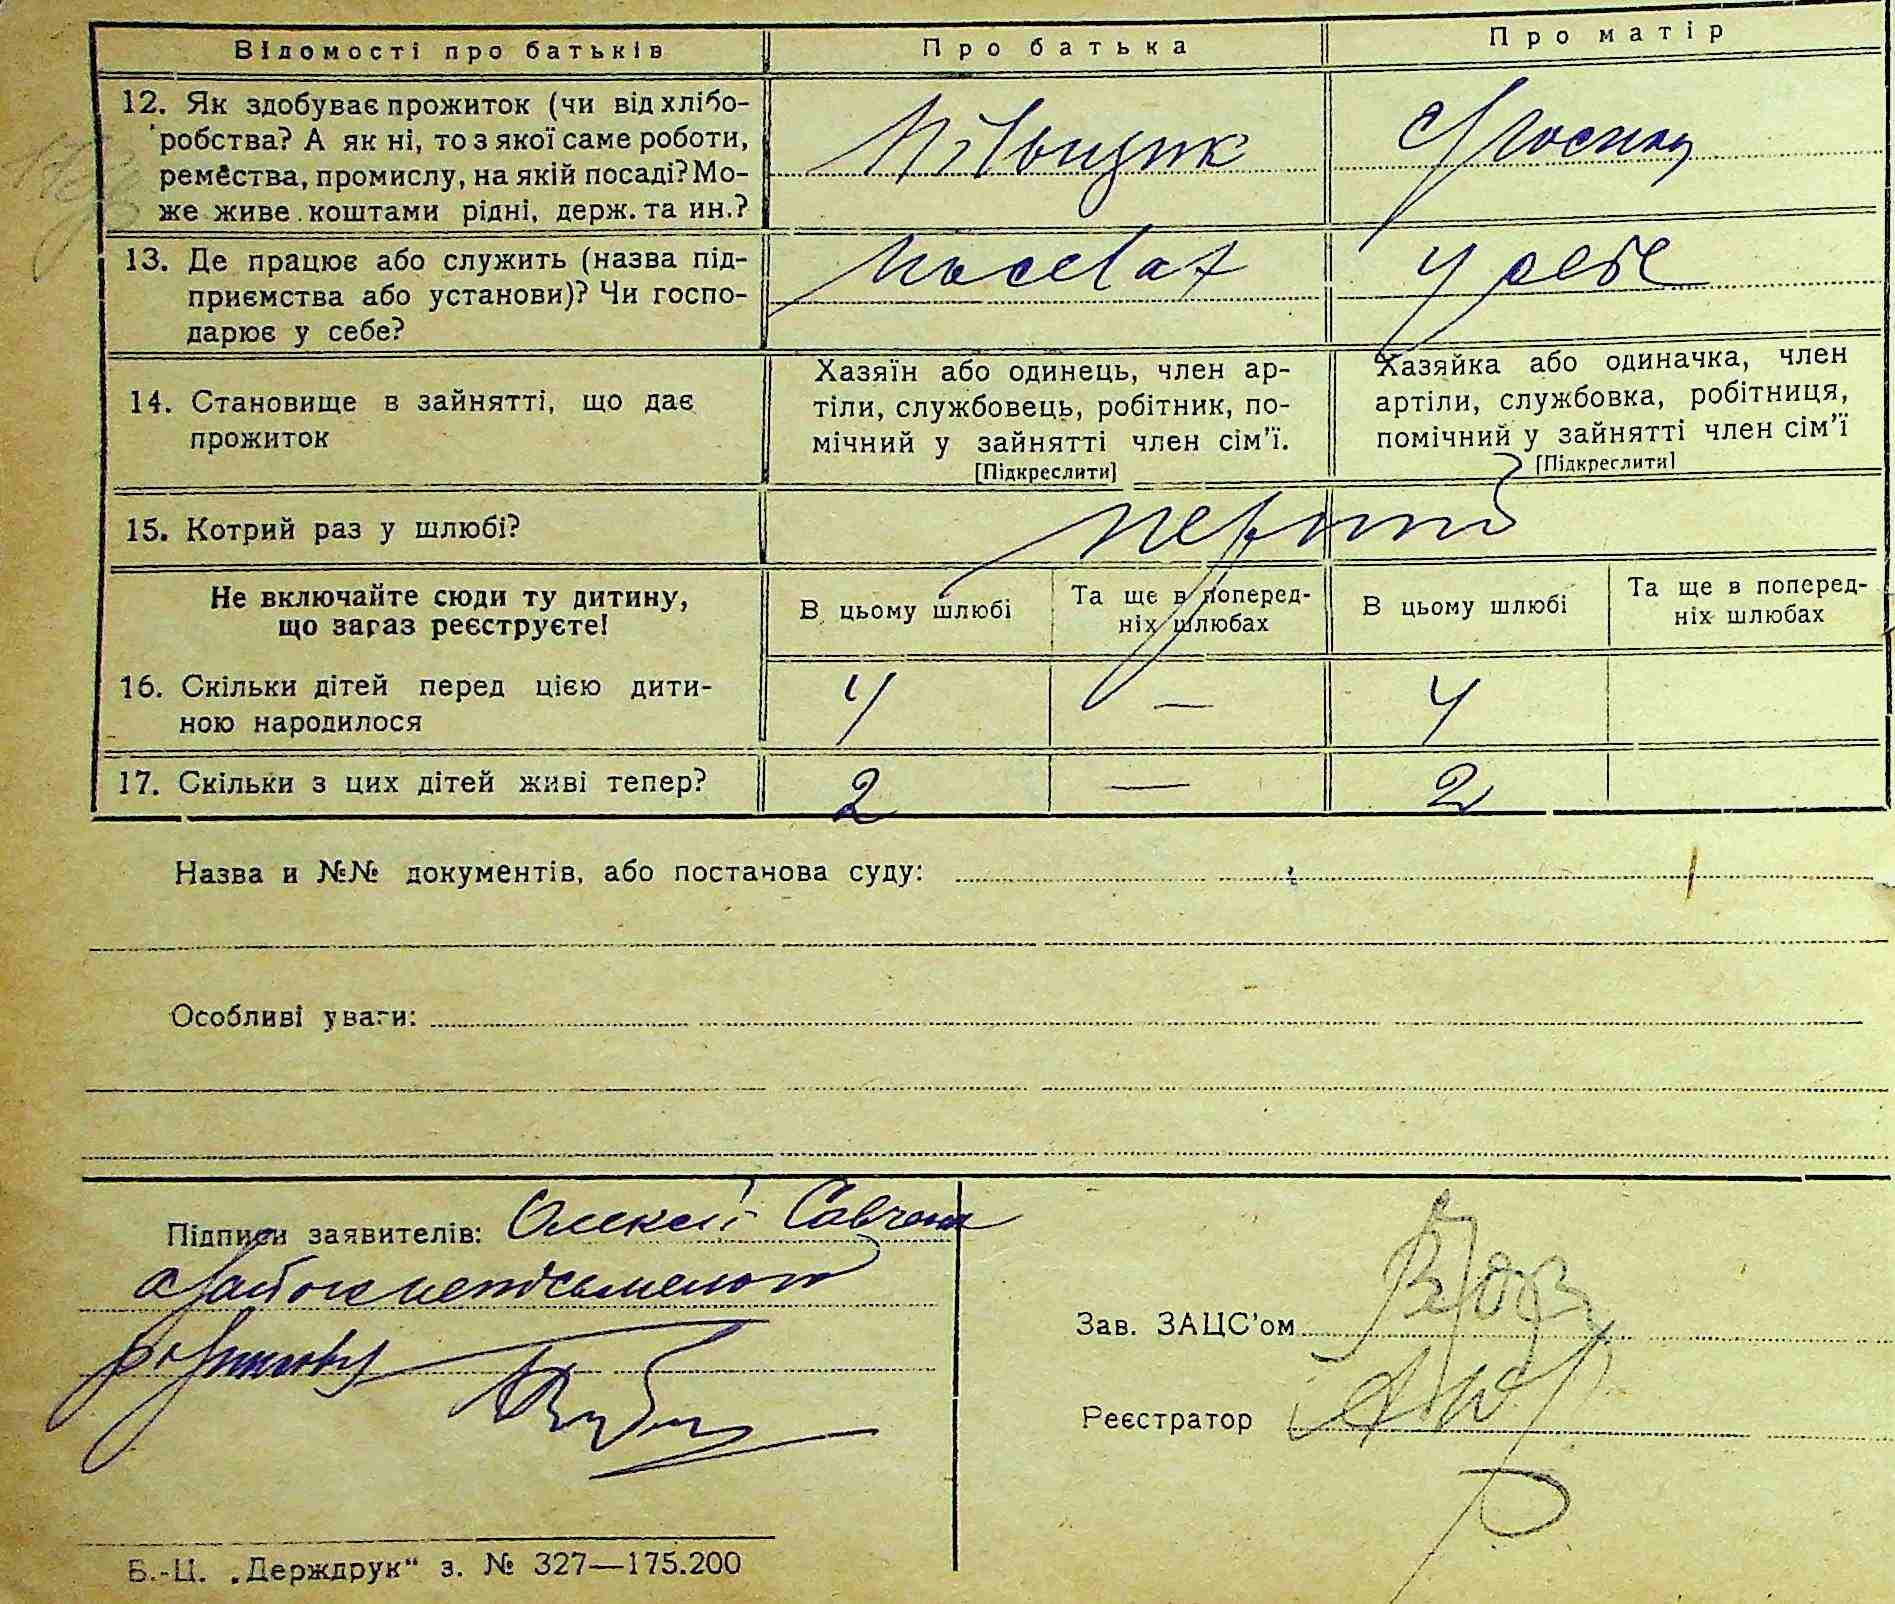 Відомості про батьків
Про батька
Про матір
12. Як здобуває прожиток (чи від хлібо-
робства? А як ні, то з якої саме роботи,
ремества, промислу, на якій посаді? Мо-
же живе коштами рідні, держ. та ин.?
13. Де працює або служить (назва під-
приємства або установи)? Чи госпо-
дарює у себе?
у себе
14. Становище в зайнятті, що дає
прожиток
Хазяїн або одинець, член ар-
тіли, службовець, робітник, по-
мічний у зайнятті член сім'ї.
[Підкреслити]
Хазяйка або одиначка, член
артіли, службовка, робітниця,
помічний у зайнятті член сім'ї
[Підкреслити]
15. Котрий раз у шлюбі?
Не включайте сюди ту дитину,
що зараз реєструєте!
В цьому шлюбі
Та ще в поперед-
ніх шлюбах
В цьому шлюбі
Та ще в поперед-
ніх шлюбах
16. Скільки дітей перед цією дити-
ною народилося
4
—
4
17. Скільки з цих дітей живі тепер?
2
—
2
Назва и №№ документів, або постанова суду:
Особливі уваги:
Підписи заявителів: Олексій
Зав. ЗАЦС'ом
Реєстратор
Б.-Ц. „Держдрук" з. № 327—175.200